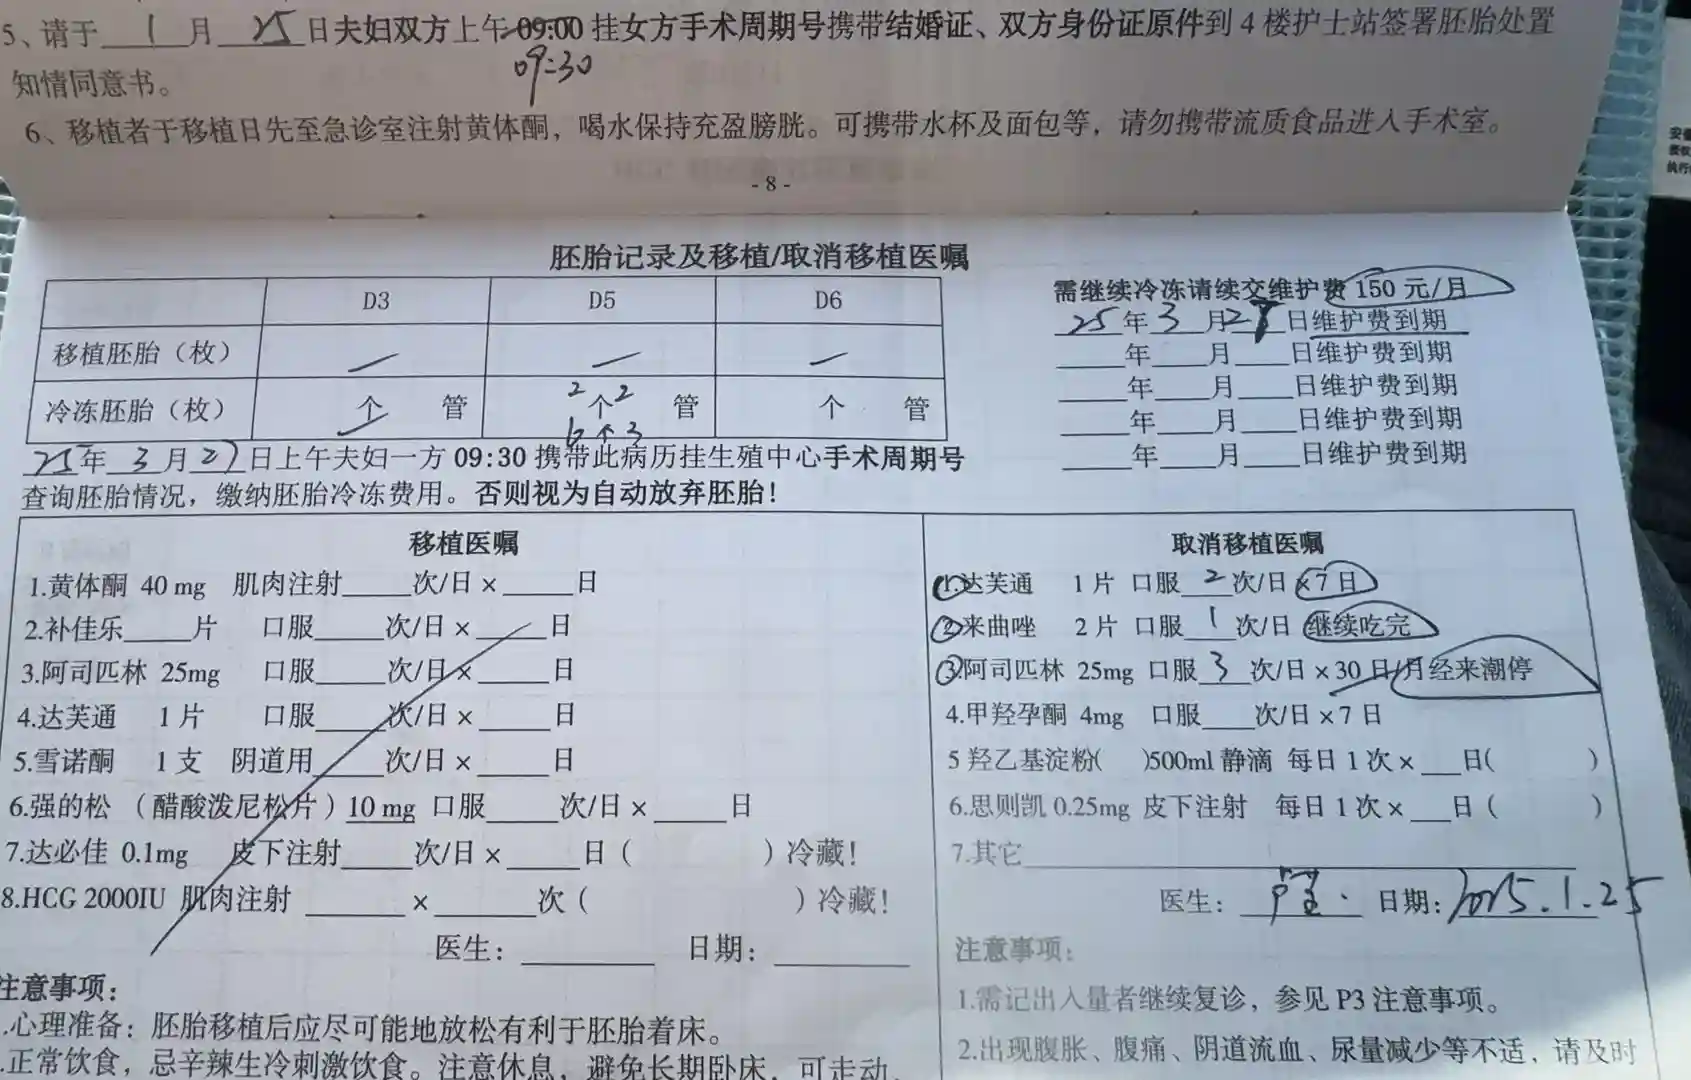 5、请于 1 月 25 日夫妇双方上午 09:00 挂女方手术周期号携带结婚证、双方身份证原件到 4 楼护士站签署胚胎处置
09:30
知情同意书。
6、移植者于移植日先至急诊室注射黄体酮，喝水保持充盈膀胱。可携带水杯及面包等，请勿携带流质食品进入手术室。
- 8 -
胚胎记录及移植/取消移植医嘱
D3 D5 D6
移植胚胎（枚） — — —
冷冻胚胎（枚） 个 管 2 个 2 管 个 管
6 个 3
25 年 3 月 27 日上午夫妇一方 09:30 携带此病历挂生殖中心手术周期号
查询胚胎情况，缴纳胚胎冷冻费用。否则视为自动放弃胚胎！
需继续冷冻请续交维护费 150 元/月
25 年 3 月 2 日维护费到期
____年____月____日维护费到期
____年____月____日维护费到期
____年____月____日维护费到期
____年____月____日维护费到期
移植医嘱
1.黄体酮 40 mg 肌肉注射____次/日 ×____日
2.补佳乐____片 口服____次/日 ×____日
3.阿司匹林 25mg 口服____次/日 ×____日
4.达芙通 1 片 口服____次/日 ×____日
5.雪诺酮 1 支 阴道用____次/日 ×____日
6.强的松 （醋酸泼尼松片）10 mg 口服____次/日 ×____日
7.达必佳 0.1mg 皮下注射____次/日 ×____日（ ）冷藏！
8.HCG 2000IU 肌肉注射 ____ ×____次（ ）冷藏！
医生：____ 日期：____
注意事项：
.心理准备：胚胎移植后应尽可能地放松有利于胚胎着床。
.正常饮食，忌辛辣生冷刺激饮食。注意休息，避免长期卧床，可走动、
取消移植医嘱
1.达芙通 1 片 口服 2 次/日 ×7 日
2.来曲唑 2 片 口服 1 次/日 继续吃完
3.阿司匹林 25mg 口服 3 次/日 ×30 日/月经来潮停
4.甲羟孕酮 4mg 口服____次/日 ×7 日
5 羟乙基淀粉( )500ml 静滴 每日 1 次 ×____日( )
6.思则凯 0.25mg 皮下注射 每日 1 次 ×____日（ ）
7.其它____
医生： 日期：2025.1.25
注意事项：
1.需记出入量者继续复诊，参见 P3 注意事项。
2.出现腹胀、腹痛、阴道流血、尿量减少等不适，请及时